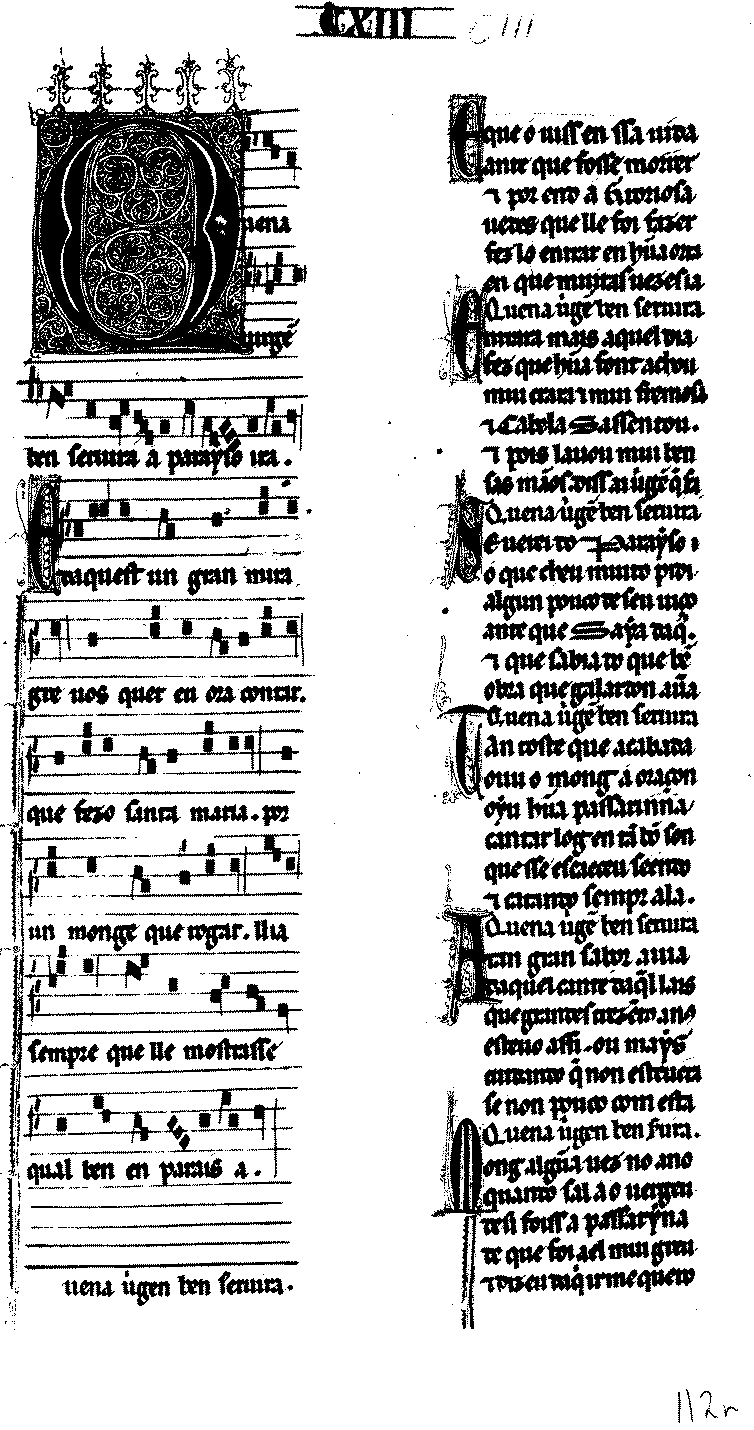 CXIII
CIII
Quena
uirgẽ
ben seruira a parayso ira.
E daquest un gran mira
gre uos quer eu ora contar.
que fezo santa maria. por
un monge que rogar. llia
sempre que lle mostrasse
qual ben en parais a.
uena uigen ben seruira.
E que o uiss en ssa uida
ante que fosse morrer
⁊ por end a gloriosa
uedes que lle foi fazer
fez lo entrar en hũa orta
en que muitas uezes ia
Quena uigẽ ben seruira
E ntrara mais aquel dia
fez que hũa font achou
mui crara ⁊ mui fremosa
⁊ cabela sassentou.
⁊ pois lauou mui ben
sas mãos. diss ai uigẽ q̇ sera
Quena uigẽ ben seruira
N
o que cheu muito pidi
algun pouco de seu uiço
ante que saya daq̇.
⁊ que sabia do que bẽ
obra que galardon auera
Quena uigẽ ben seruira
T an toste que acabada
ouu o mong a oraçon
oyu hũa passarinna
cantar log en tã bõ son
que sse escaeceu seendo
⁊ catando sempr ala.
Quena uigẽ ben seruira
A tan gran sabor auia
daquel cant e daq̇l lais
que grandes trezẽtos anos
esteuo assi. ou mays
cuidando q̇ non esteuera
se non pouco com esta
Quena uigen ben surra.
M ong algũa uez no ano
quando sal a o uergeu
desi foiss a passaryna
de que foi ael mui greu
⁊ diz eu daq̇ ir me quero
112r